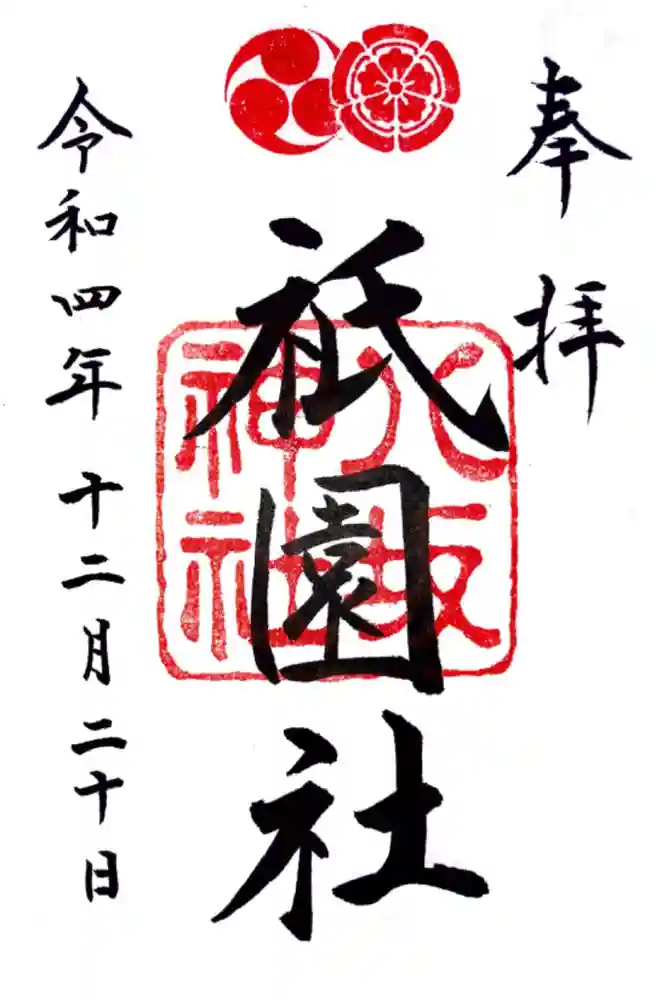 奉拝
祇園社
八坂
神社
令和四年十二月二十日